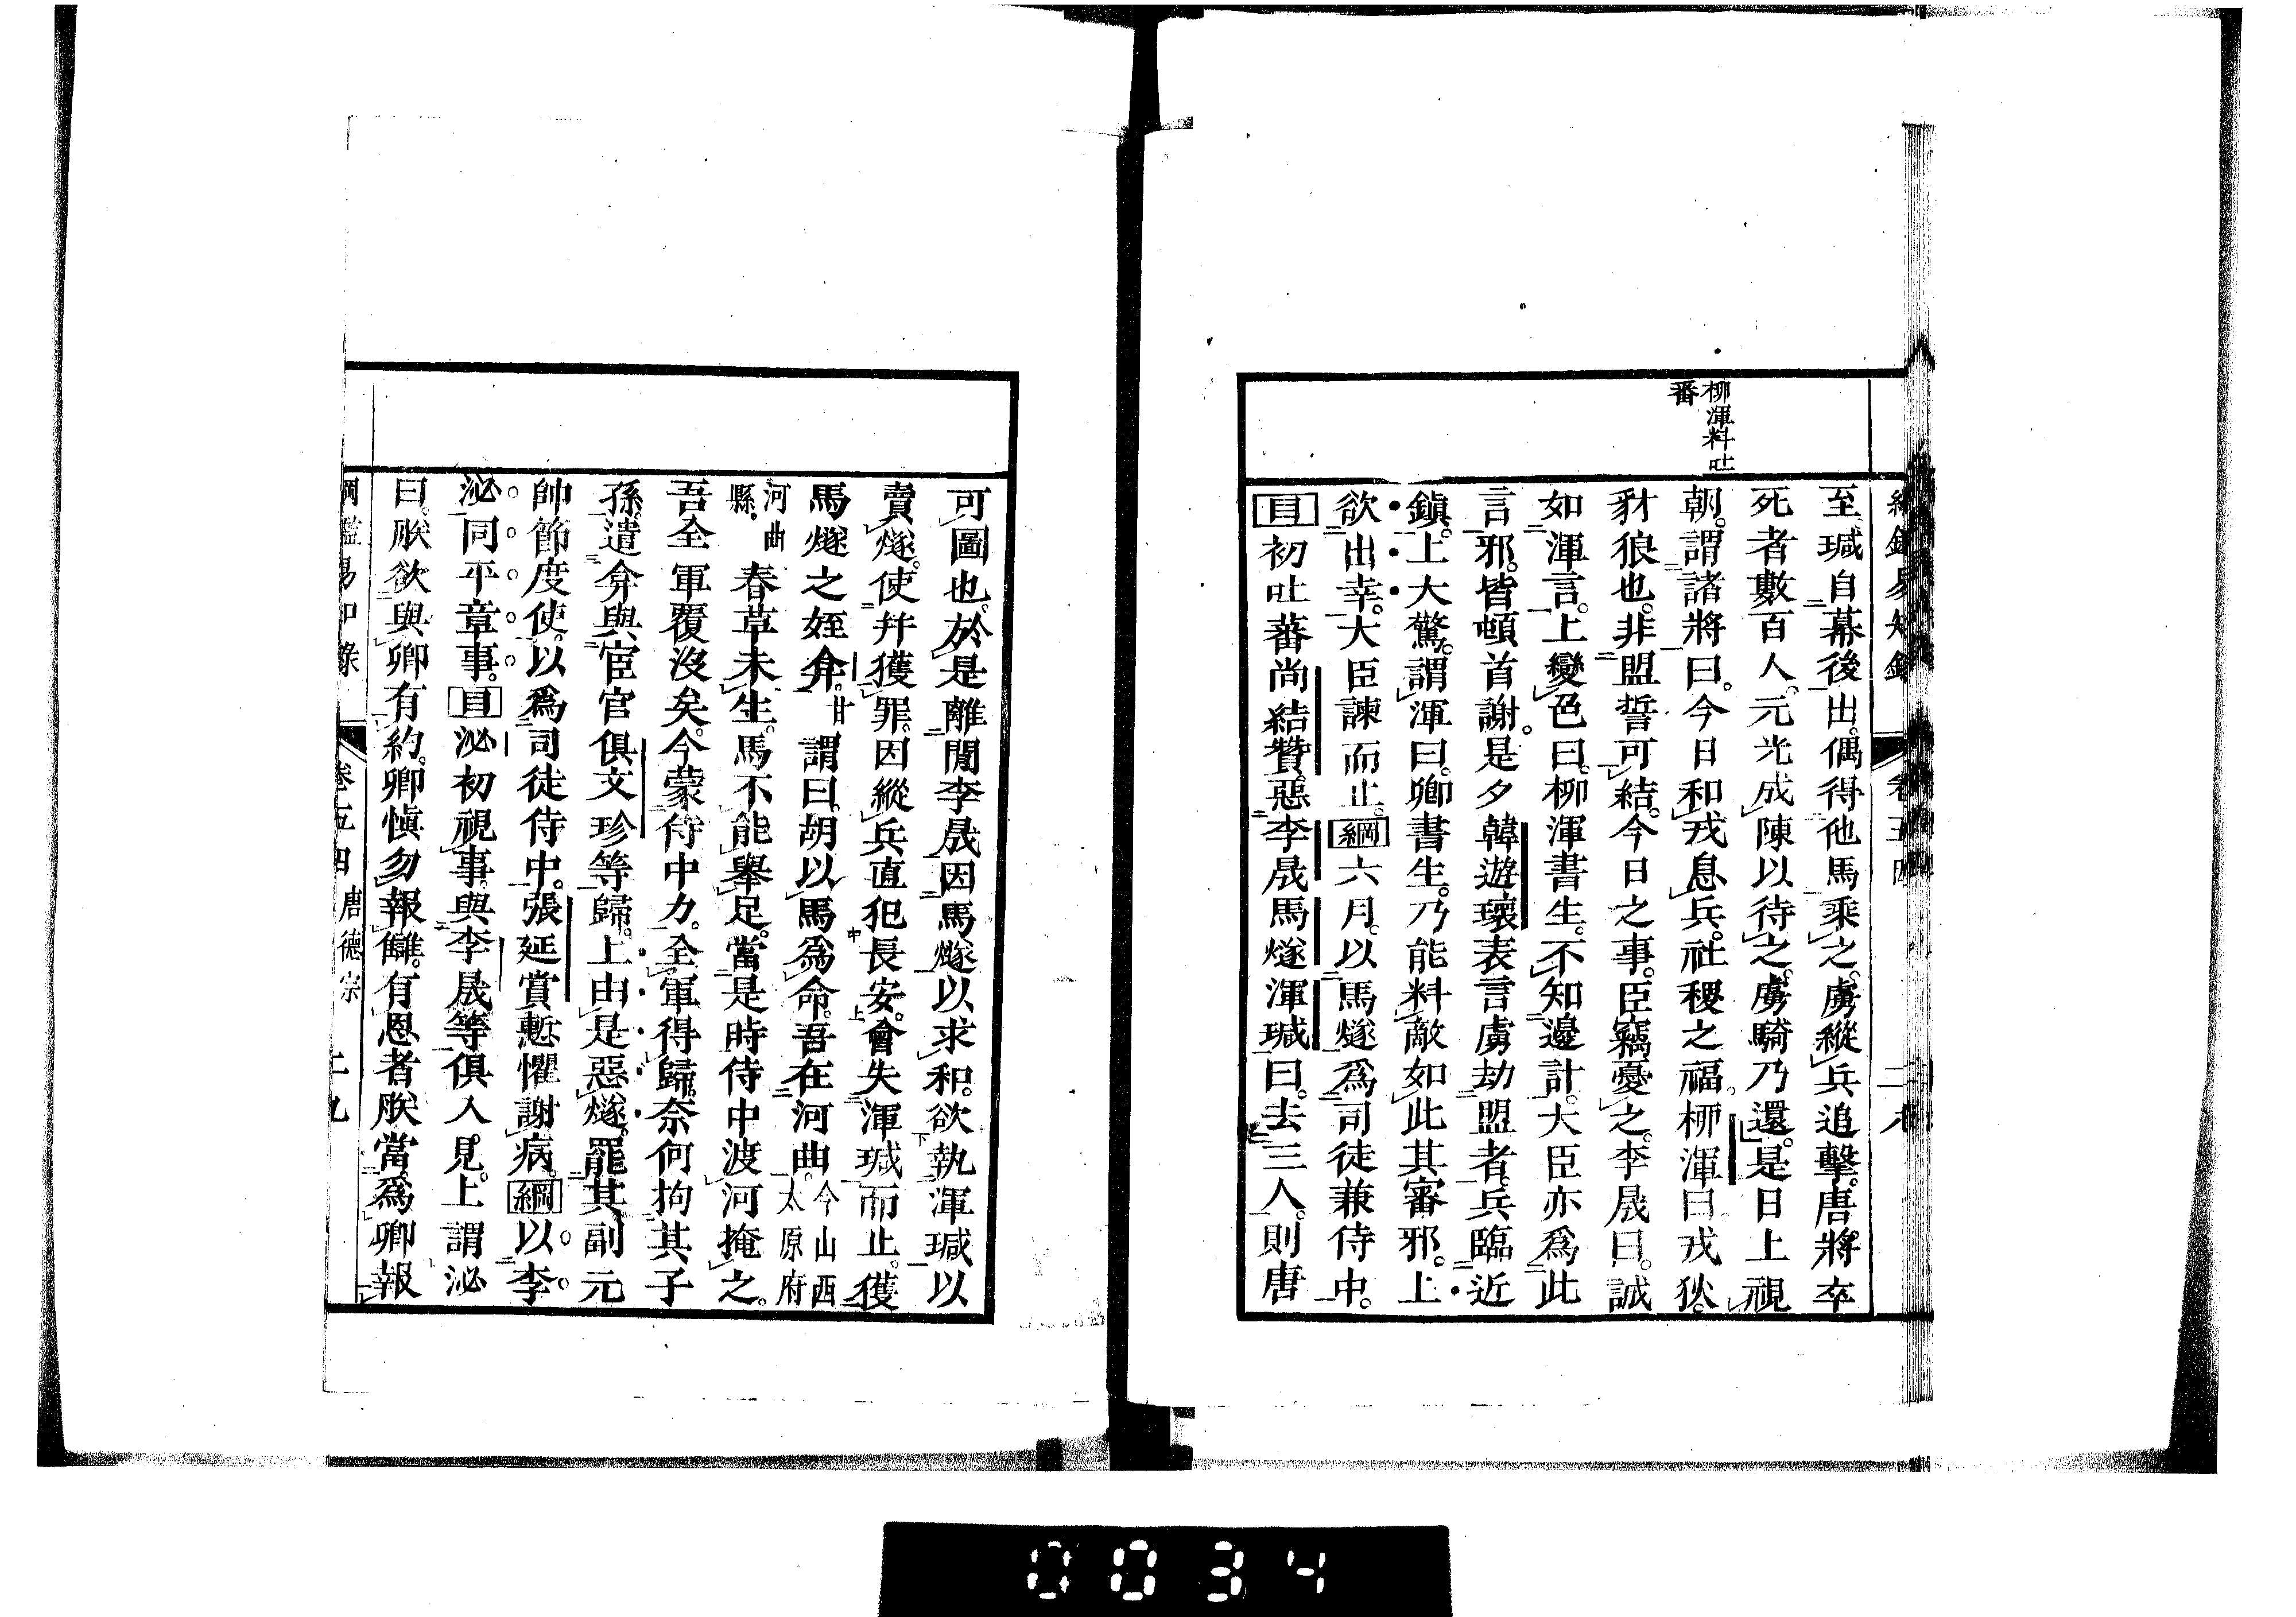 柳渾料吐
番
至。瑊自幕後出。偶得他馬乘之。虜縱兵追擊。唐將卒
死者數百人。元光成陳以待之。虜騎乃還。是日上視
朝。謂諸將曰。今日和戎息兵。社稷之福。柳渾曰。戎狄。
豺狼也。非盟誓可結。今日之事。臣竊憂之。李晟曰。誠
如渾言。上變色曰。柳渾書生。不知邊計。大臣亦爲此
言邪。皆頓首謝。是夕韓遊瓌表言虜劫盟者。兵臨近
鎭。上大驚。謂渾曰。卿書生。乃能料敵如此其審邪。上
欲出幸。大臣諫而止。綱六月。以馬燧爲司徒兼侍中。
目初吐蕃尚結贊。惡李晟馬燧渾瑊曰。去三人。則唐
可圖也。於是離間李晟因馬燧以求和。欲執渾瑊以
賣燧。使幷獲罪。因縱兵直犯長安。會失渾瑊而止。獲
馬燧之姪弇。甘謂曰。胡以馬爲命。吾在河曲。今山西
太原府
河曲
縣。春草未生。馬不能擧足。當是時侍中渡河掩之。
吾全軍覆沒矣。今蒙侍中力。全軍得歸。奈何拘其子
孫。遣弇與宦官俱文珍等歸。上由是惡燧。罷其副元
帥節度使。以爲司徒侍中。張延賞慙懼謝病。綱以李
泌同平章事。目泌初視事。與李晟等俱入見。上謂泌
曰。朕欲與卿有約。卿愼勿報讎。有恩者朕當爲卿報
綱鑑易知錄 卷五四 唐德宗 二九
0034